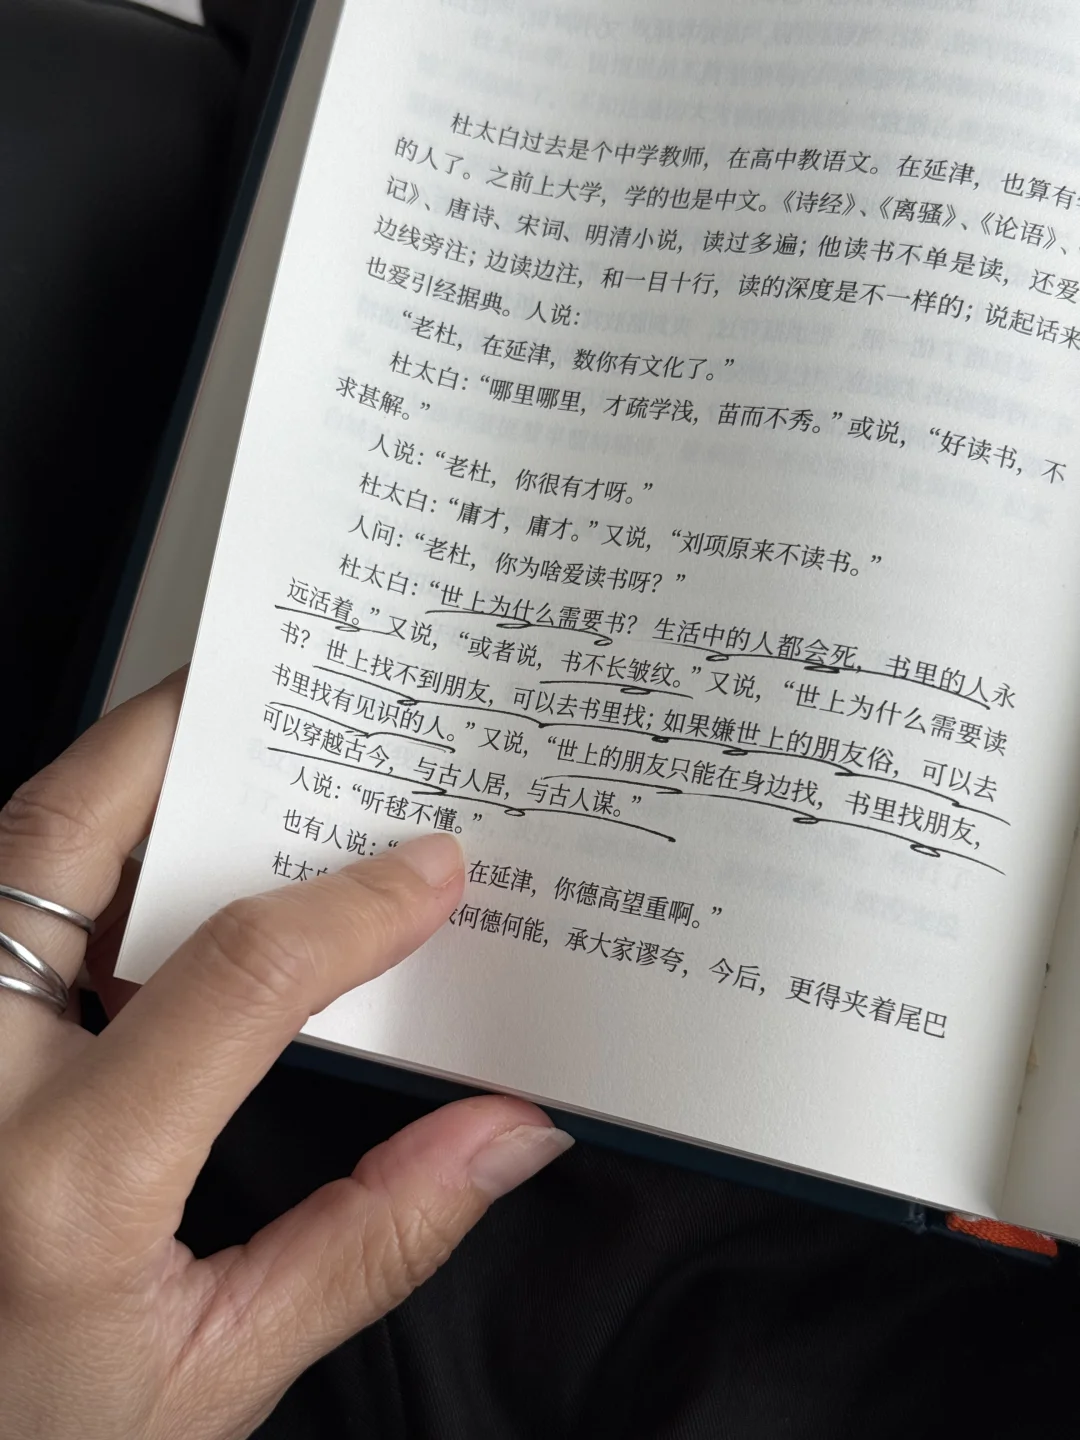 杜太白过去是个中学教师，在高中教语文。在延津，也算有
的人了。之前上大学，学的也是中文。《诗经》、《离骚》、《论语》、
记》、唐诗、宋词、明清小说，读过多遍；他读书不单是读，还爱
边线旁注；边读边注，和一目十行，读的深度是不一样的；说起话来
也爱引经据典。人说：
“老杜，在延津，数你有文化了。”
杜太白：“哪里哪里，才疏学浅，苗而不秀。”或说，“好读书，不
求甚解。”
人说：“老杜，你很有才呀。”
杜太白：“庸才，庸才。”又说，“刘项原来不读书。”
人问：“老杜，你为啥爱读书呀？”
杜太白：“世上为什么需要书？生活中的人都会死，书里的人永
远活着。”又说，“或者说，书不长皱纹。”又说，“世上为什么需要读
书？世上找不到朋友，可以去书里找；如果嫌世上的朋友俗，可以去
书里找有见识的人。”又说，“世上的朋友只能在身边找，书里找朋友，
可以穿越古今，与古人居，与古人谋。”
人说：“听毬不懂。”
也有人说：“在延津，你德高望重啊。”
杜太白何德何能，承大家谬夸，今后，更得夹着尾巴